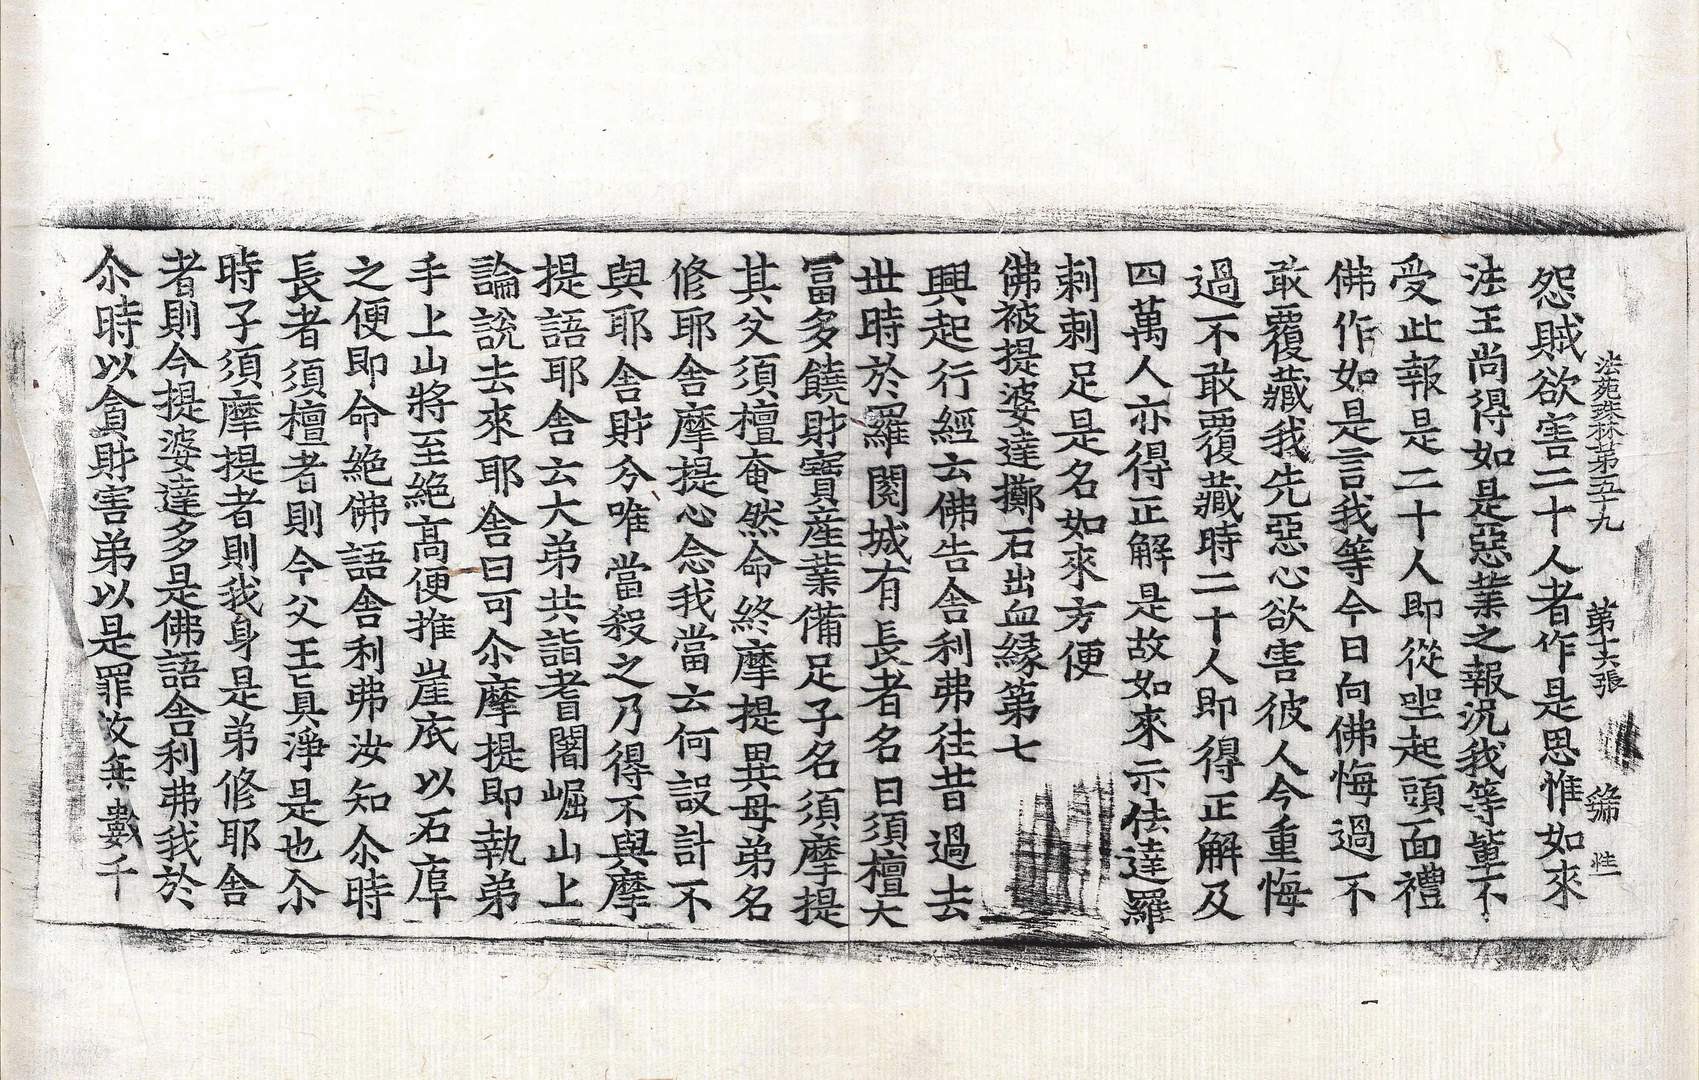 法苑珠林第五十九　第十六張　緜　性
怨賊欲害二十人者作是思惟如來
法王尚得如是惡業之報況我等輩不
受此報是二十人即從坐起頭面禮
佛作如是言我等今日向佛悔過不
敢覆藏我先惡心欲害彼人今重悔
過不敢覆藏時二十人即得正解及
四萬人亦得正解是故如來示佉達羅
刺刺足是名如來方便
佛被提婆達擲石出血緣第七
興起行經云佛告舍利弗往昔過去
世時於羅閱城有長者名曰須檀大
富多饒財寶産業備足子名須摩提
其父須檀奄然命終摩提異母弟名
修耶舍摩提心念我當云何設計不
與耶舍財分唯當殺之乃得不與摩
提語耶舍云大弟共詣耆闍崛山上
論說去來耶舍曰可尒摩提即執弟
手上山將至絶高便推崖底以石㿺
之便即命絶佛語舍利弗汝知尒時
長者須檀者則今父王真淨是也尒
時子須摩提者則我身是弟修耶舍
者則今提婆達多是佛語舍利弗我於
尒時以貪財害弟以是罪故無數千